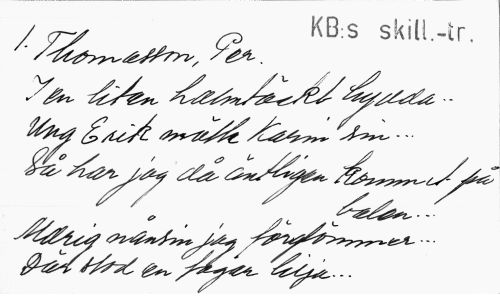 KB:s skill.-tr.
1. Thomasson, Per.
I en liten halmtäckt hydda..
Ung Erik mötte Karin sin...
Så har jag då äntligen kommit på
balen...
Märig nånsin jag fördömmer...
Där stod en fager lilja...